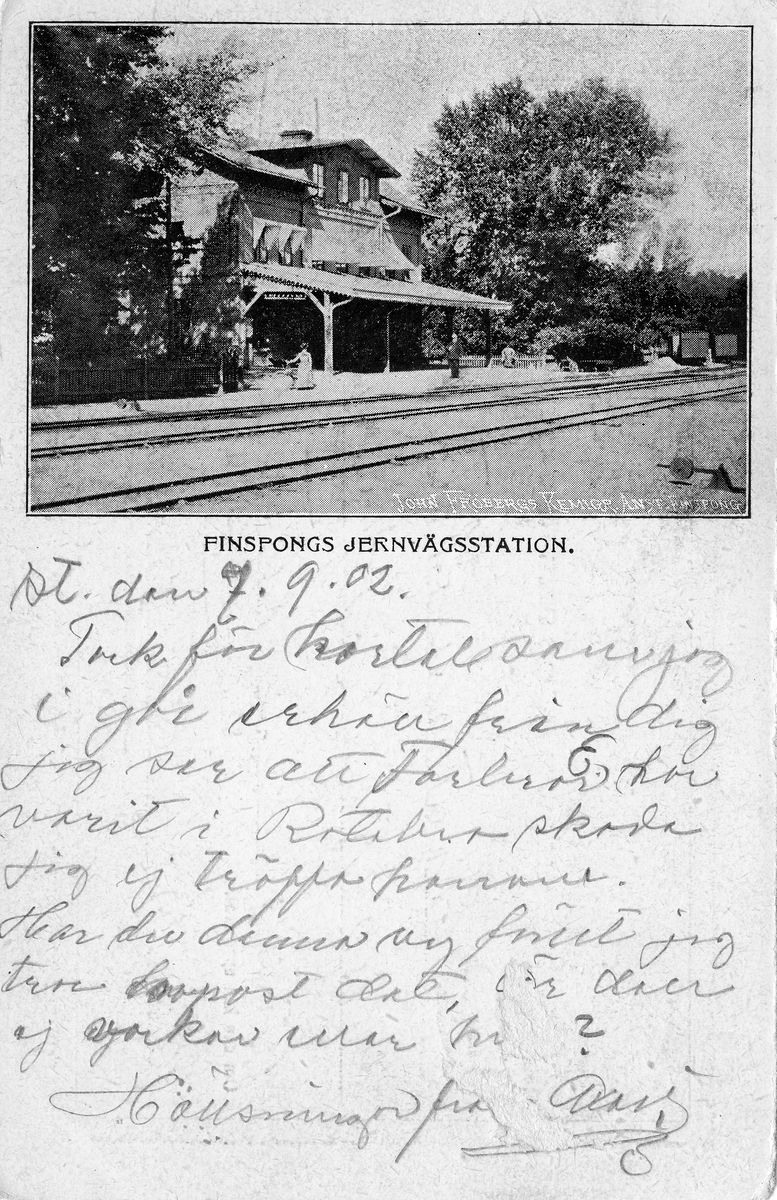 JOHN FRÖBERGS KEMIGR. ANST. FINSPONG
FINSPONGS JERNVÄGSSTATION.
St. den 7. 9. 02.
Tack för kortet som jag
i går erhöll från dig
jag ser att Farbror har
varit i Rotebro skada
jag ej träffa honom.
Har du denna vy förut jag
tror det, är den
ej vacker eller ?
Hällsningar från